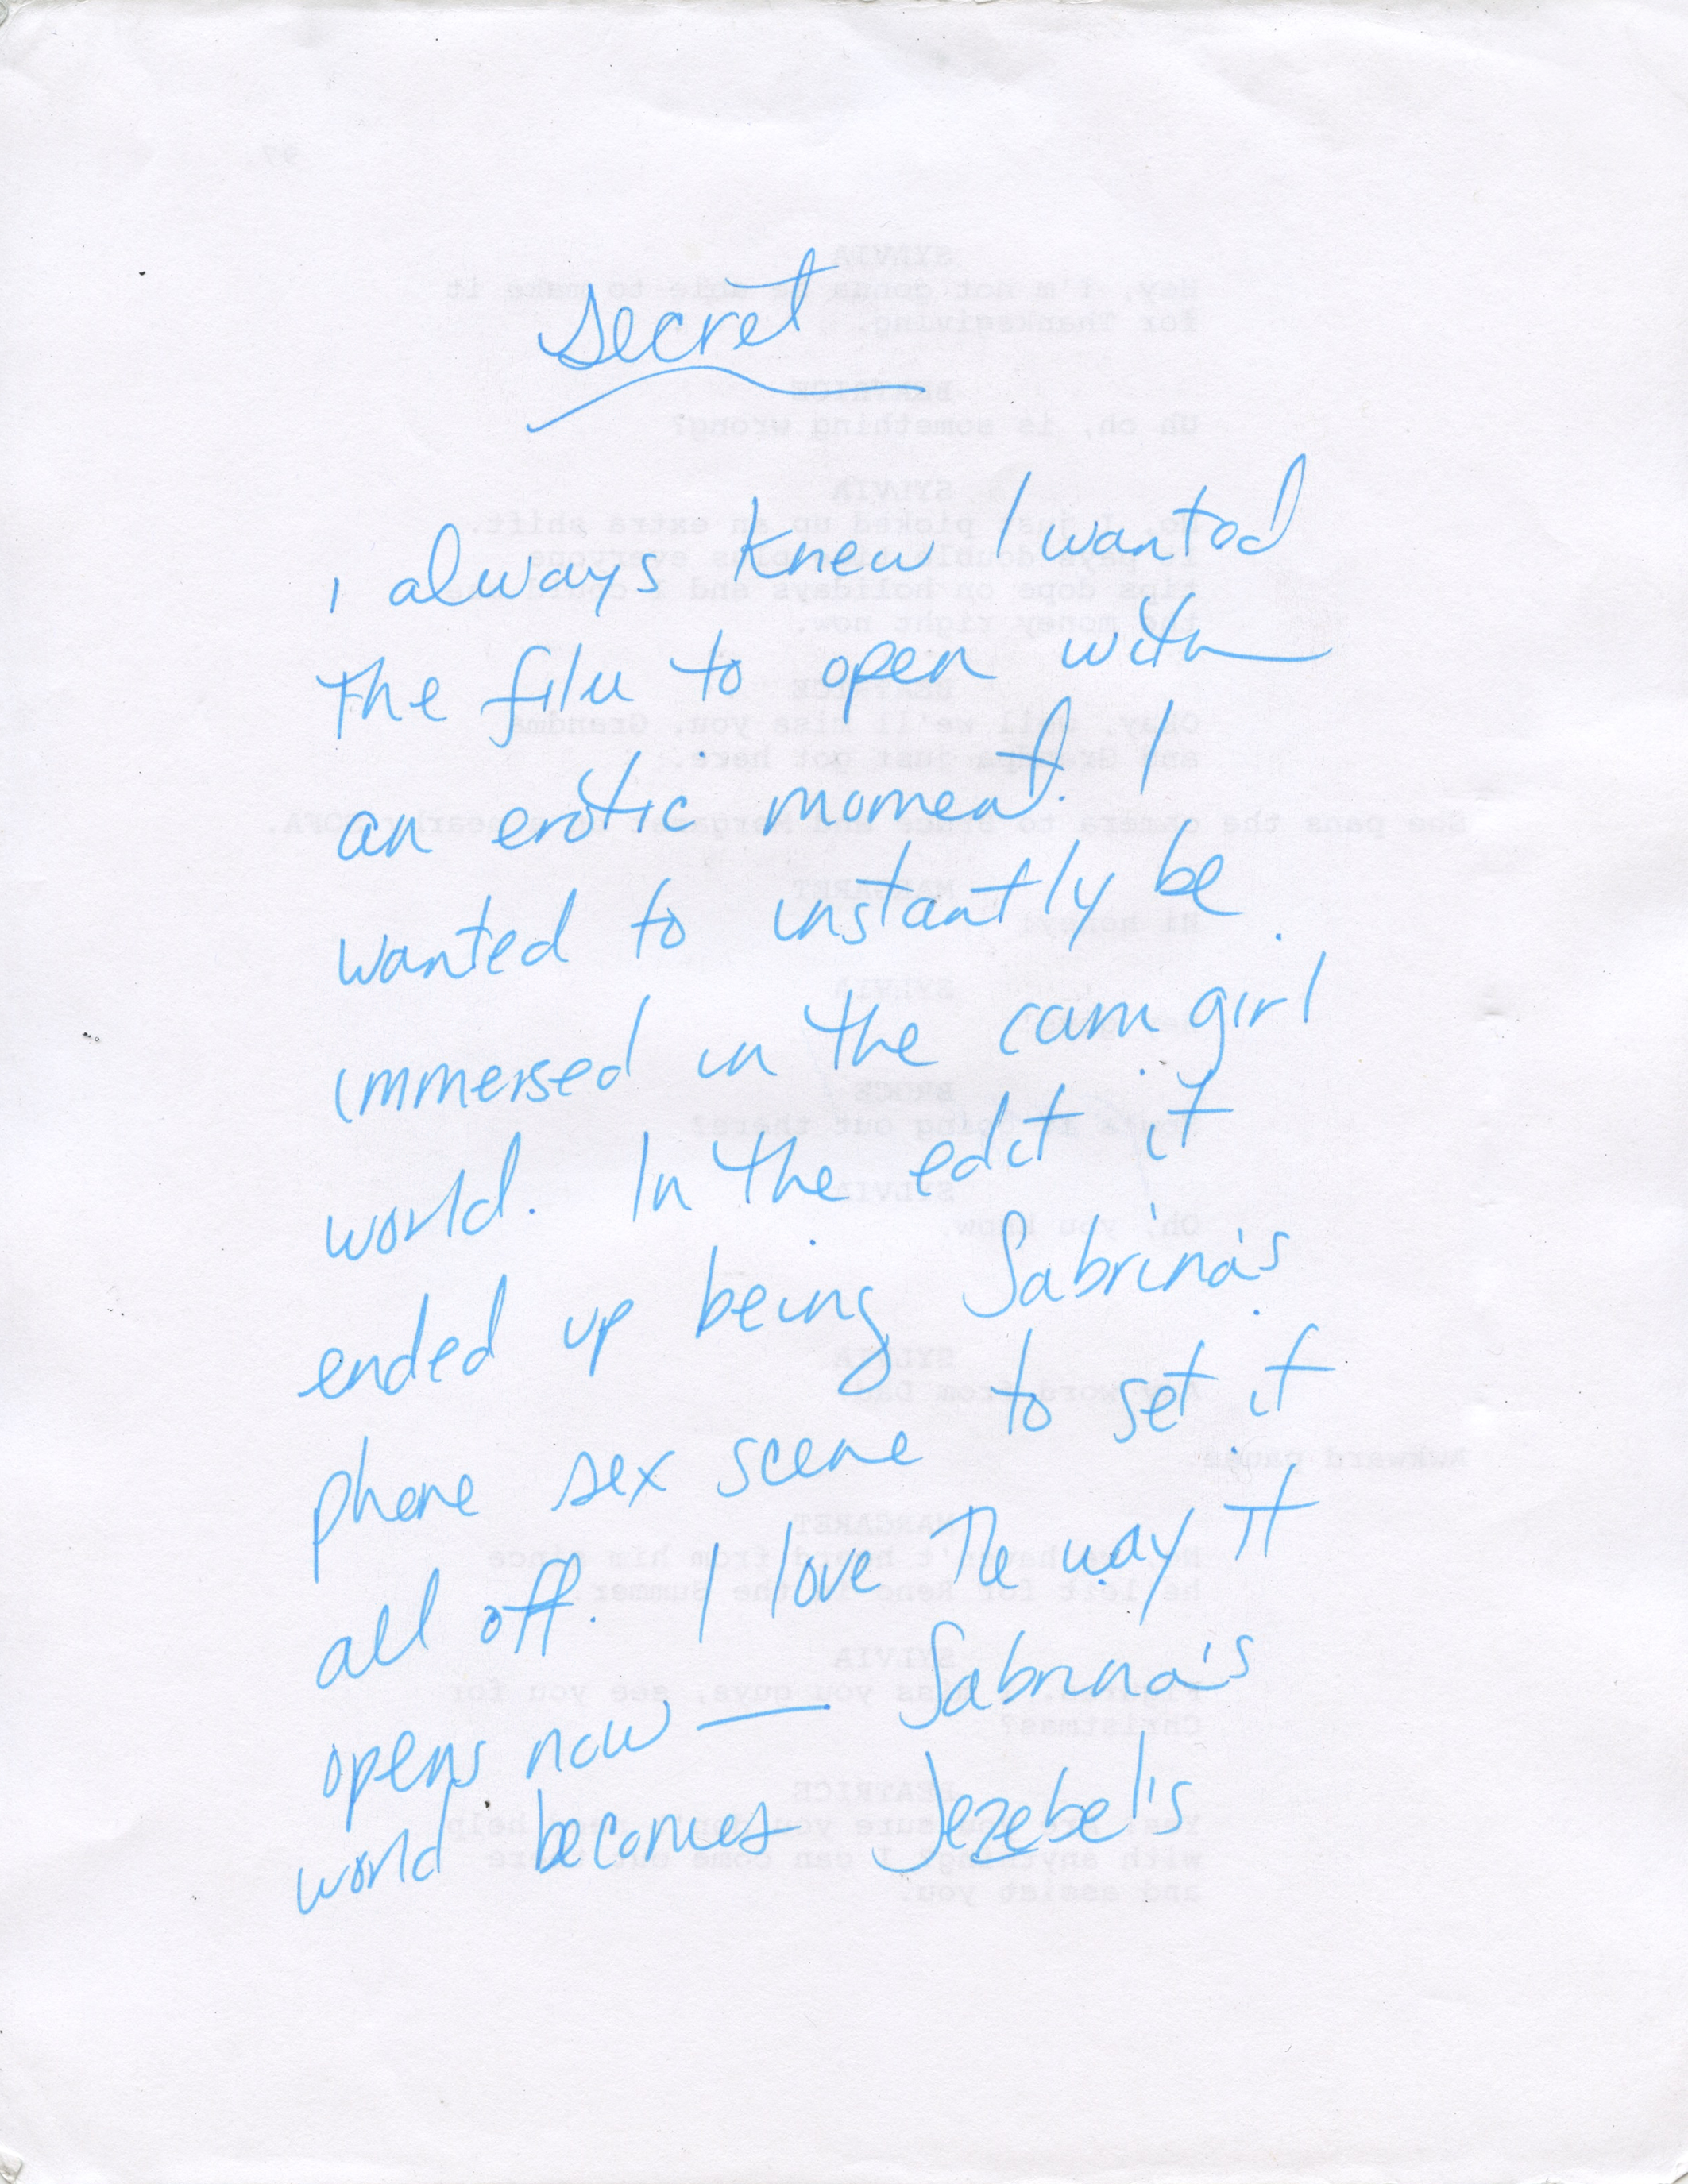 secret
I always knew I wanted
the film to open with
an erotic moment. I
wanted to instantly be
immersed in the cam girl
world. In the edit it
ended up being Sabrina's
phone sex scene to set it
all off. I love the way it
opens now — Sabrina's
world becomes Jezebel's